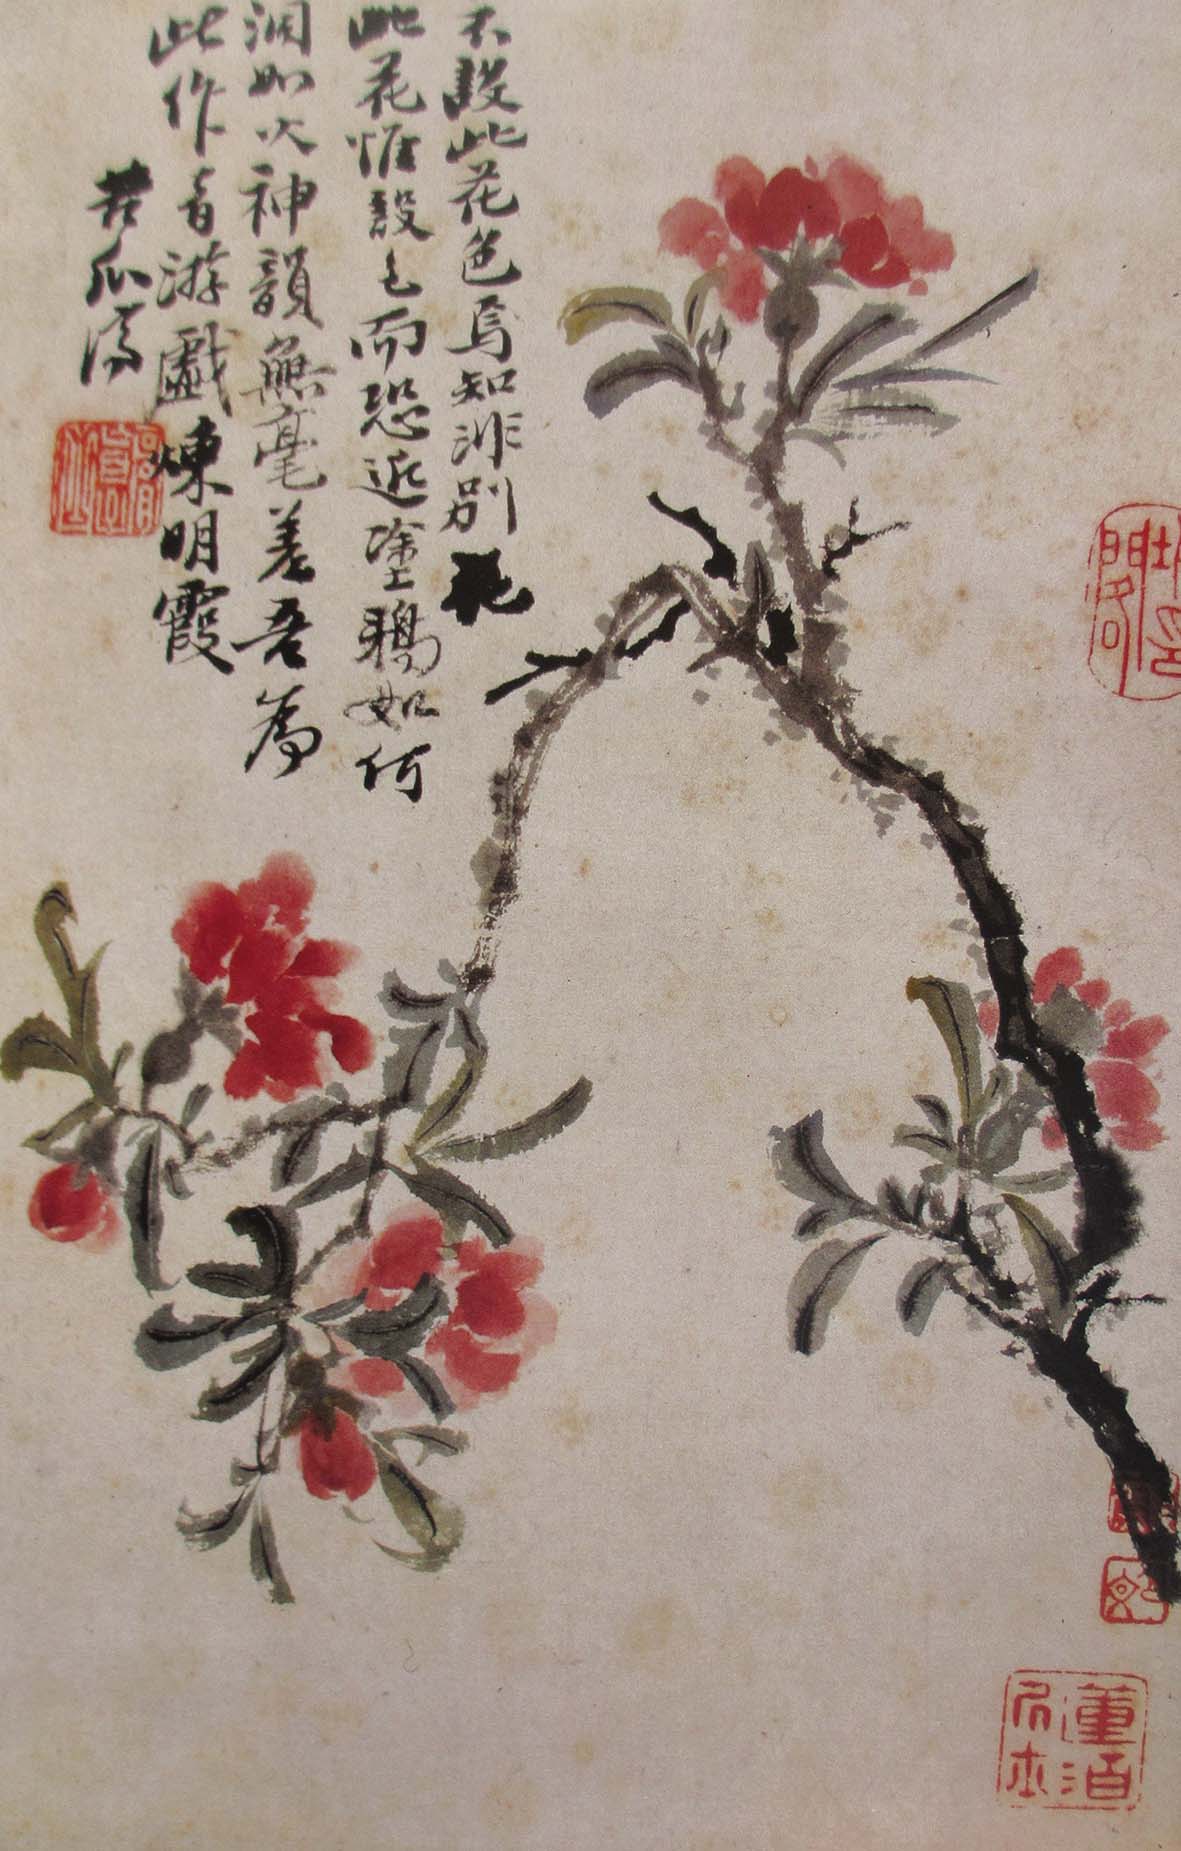 不設此花色焉知非別花
此花惟設色而恐近塗鴉如何
洞如以神韻無毫差吾為
此作音游戲煉明霞
苦瓜濟